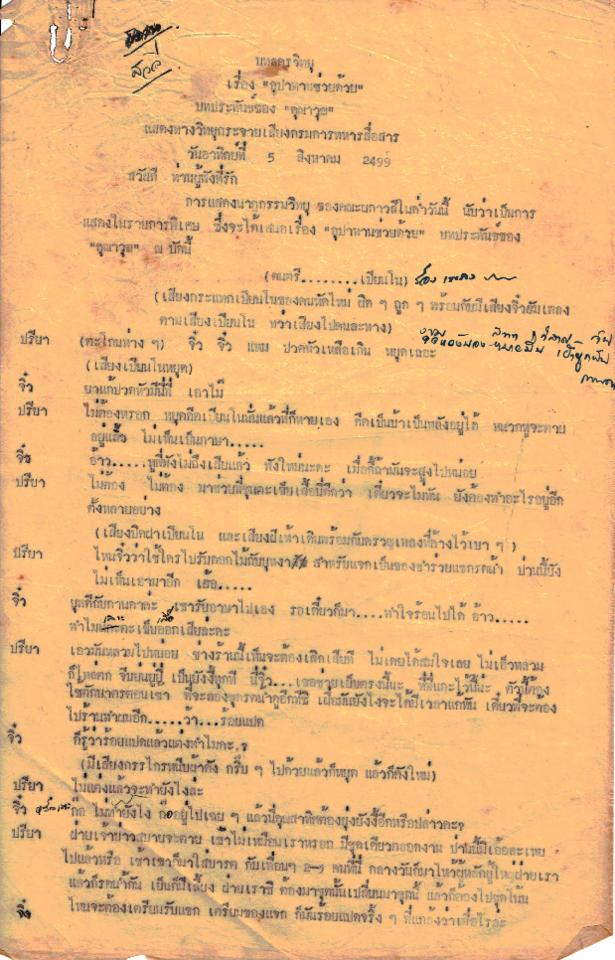 สวลี
บทละครวิทยุ
เรื่อง "อุปาทานช่วยด้วย"
บทประพันธ์ของ "คุณาวุฒิ"
แสดงทางวิทยุกระจายเสียงกรมการทหารสื่อสาร
วันอาทิตย์ที่ 5 สิงหาคม 2499
สวัสดี ท่านผู้ฟังที่รัก
การแสดงนาฏกรรมวิทยุ ของคณะ ในค่ำวันนี้ นับว่าเป็นการ
แสดงในรายการพิเศษ ซึ่งจะได้เสนอเรื่อง "อุปาทานช่วยด้วย" บทประพันธ์ของ
"คุณาวุฒิ" ณ บัดนี้
(ดนตรี........เปียนโน)
(เสียงกระแทกเปียนโนของคนหัดใหม่ ผิด ๆ ถูก ๆ พร้อมกับมีเสียงจิ๋วฮัมเพลง
ตามเสียงเปียนโน)
ปรียา (ตะโกนห่าง ๆ) จิ๋ว จิ๋ว แหม ปวดหัวเหลือเกิน หยุดเถอะ
(เสียงเปียนโนหยุด)
จิ๋ว ยาแก้ปวดหัวมีนี่พี่ เอาไม๊
ปรียา ไม่ต้องหรอก หยุดดีดเปียนโนนั่นแล้วพี่ก็หายเอง ดีดเป็นบ้าเป็นหลังอยู่ได้ หนวกหูจะตาย
อยู่แล้ว ไม่เห็นเป็นภาษา.....
จิ๋ว อ้าว.....พี่ฟังไม่ถึงเสียแล้ว ฟังใหม่นะคะ เมื่อกี้ล้ามันจะสูงไปหน่อย
ปรียา ไม่ต้อง ไม่ต้อง มาช่วยพี่ เย็บเสื้อนี่ดีกว่า เดี๋ยวจะไม่ทัน ยังต้องทำอะไรอยู่อีก
ตั้งหลายอย่าง
(เสียงปิดฝาเปียนโน และเสียงฝีเท้าเดินพร้อมกับครวญเพลงที่ค้างไว้เบา ๆ)
ปรียา ไหนจิ๋วว่าใช้ใครไปรับดอกไม้กับบุหงา สำหรับแจกเป็นของชำร่วยแขกรดน้ำ ป่านนี้ยัง
ไม่เห็นเอามาอีก เฮ้อ.....
จิ๋ว เขารับอาษาไปเอง รอเดี๋ยวก็มา....ทำใจร้อนไปได้ อ้าว.....
ทำไม คะเย็บออกเสียล่ะคะ
ปรียา เอวมันหลวมไปหน่อย ช่างร้านนี้เห็นจะต้องเลิกเสียที ไม่เคยได้สมใจเลย ไม่เอวหลวม
ก็ไหล่ตก จีบย่นยู่ยี่ เป็นยังงี้ทุกที นี่จิ๋ว....เธอช่วยเย็บตรงนี้นะ ที่พี่แกะไว้นี่น่ะ
ไปร้านทำผมอีก.....ว้า....รอยแปด
จิ๋ว ก็รู้ว่าร้อยแปดแล้วแต่งทำไมคะ?
(มีเสียงกรรไกรหนีบผ้าดัง กริ๊บ ๆ ไปด้วยแล้วก็หยุด แล้วก็ดังใหม่)
ปรียา ไม่แต่งแล้วจะทำยังไงล่ะ
จิ๋ว ก็อยู่ไปเฉย ๆ แล้วนี่คุณสาทิศต้องยุ่งยังงี้อีกหรือปล่าวคะ?
ปรียา ฝ่ายเจ้าบ่าวสบายจะตาย เขาไม่เหมือนเราหรอก มีชุดเดียวตลอดงาน ป่านนี้มีเอ้อละเหย
ไปแล้วหรือ เช้าเขาก็มาใส่บาตร กับเพื่อนๆ ๒-๓ คนที่นี่ กลางวันก็มาไหว้ผู้หลักผู้ใหญ่ฝ่ายเรา
แล้วก็รดน้ำกัน เย็นก็มีเลี้ยง ฝ่ายเราซิ ต้องมาชุดนั้นเปลี่ยนมาชุดนี้ แล้วก็ต้องไปชุดโน้น
ไหนจะต้องเตรียมรับแขก เตรียมของแจก ก็มันร้อยแปดจริ๊ง ๆ
จิ๋ว